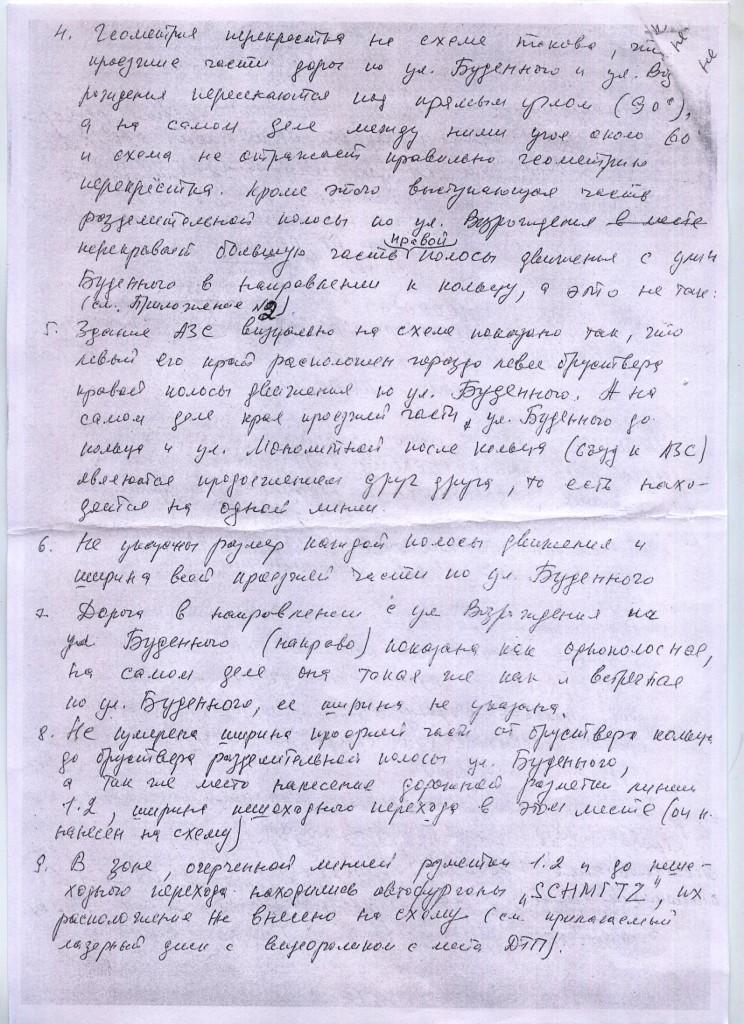 4. Геометрия перекрестка на схеме такова, что
проезжие части дорог по ул. Буденного и ул. Воз
рождения пересекаются под прямым углом (90°),
а на самом деле между ними угол около 60°
и схема не отражает правильно геометрию
перекрёстка. Кроме этого выступающая часть
разделительной полосы по ул. Возрождения в месте
перекрывает большую часть правой полосы движения с
Буденного в направлении к кольцу, а это не так.
(см. Приложение №2)
5. Здание АЗС визуально на схеме показано так, что
левый его край расположен гораздо левее бруствера
правой полосы движения по ул. Буденного. А на
самом деле края проезжей части ул. Буденного до
кольца и ул. Монолитной после кольца (съезд к АЗС)
являются продолжением друг друга, то есть нахо-
дятся на одной линии.
6. Не указаны размер каждой полосы движения и
ширина всей проезжей части по ул. Буденного
7. Дорога в направлении с ул Возрождения на
ул Буденного (направо) показана как однополосная,
на самом деле она такая же как и встречная
по ул. Буденного, ее ширина не указана.
8. Не измерена ширина проезжей части от бруствера кольца
до бруствера разделительной полосы ул. Буденного,
а так же место нанесение дорожной разметки линии
1.2, ширина пешеходного перехода в этом месте (он н.
нанесен на схему)
9. В зоне, очерченной линией разметки 1.2 и до пеше-
ходного перехода находились автофургоны „SCHMITZ", их
расположение не внесено на схему (см прилагаемый
лазерный диск с видеороликом с места ДТП).
не
не